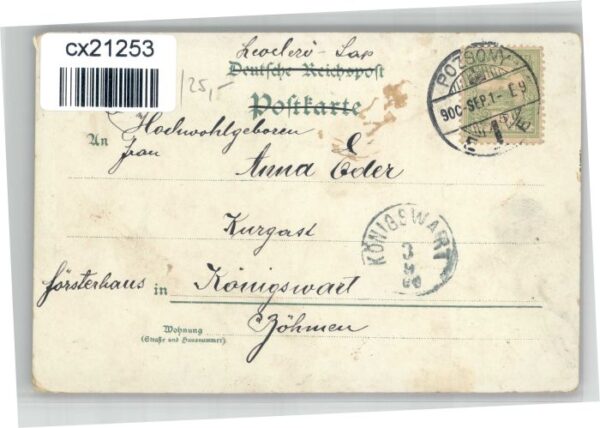 cx21253
Levelező-Lap
/25,-
Deutsche Reichspost
Postkarte
POZSONY
900 SEP. 1 - E 9
An
Hochwohlgeboren
Frau
Anna Eder
Kurgast
KÖNIGSWART
Försterhaus in Königswart
Böhmen
Wohnung
(Straße und Hausnummer).